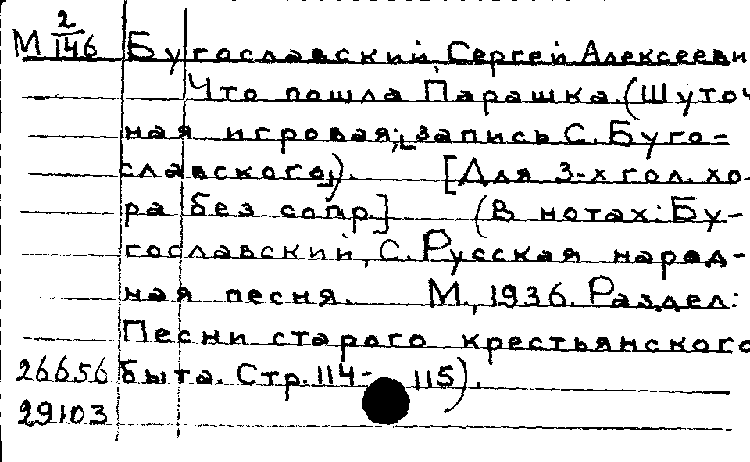 М 2/146 Бугославский, Сергей Алексееви
Что пошла Парашка (Шуточ
ная игровая; запись С. Буго=
славского). [Для 3-х гол. хо-
ра без сопр.] (В нотах: Бу-
гославский, С. Русская народ-
ная песня. М., 1936. Раздел:
Песни старого крестьянского
26656 быта. Стр. 114- 115).
29103